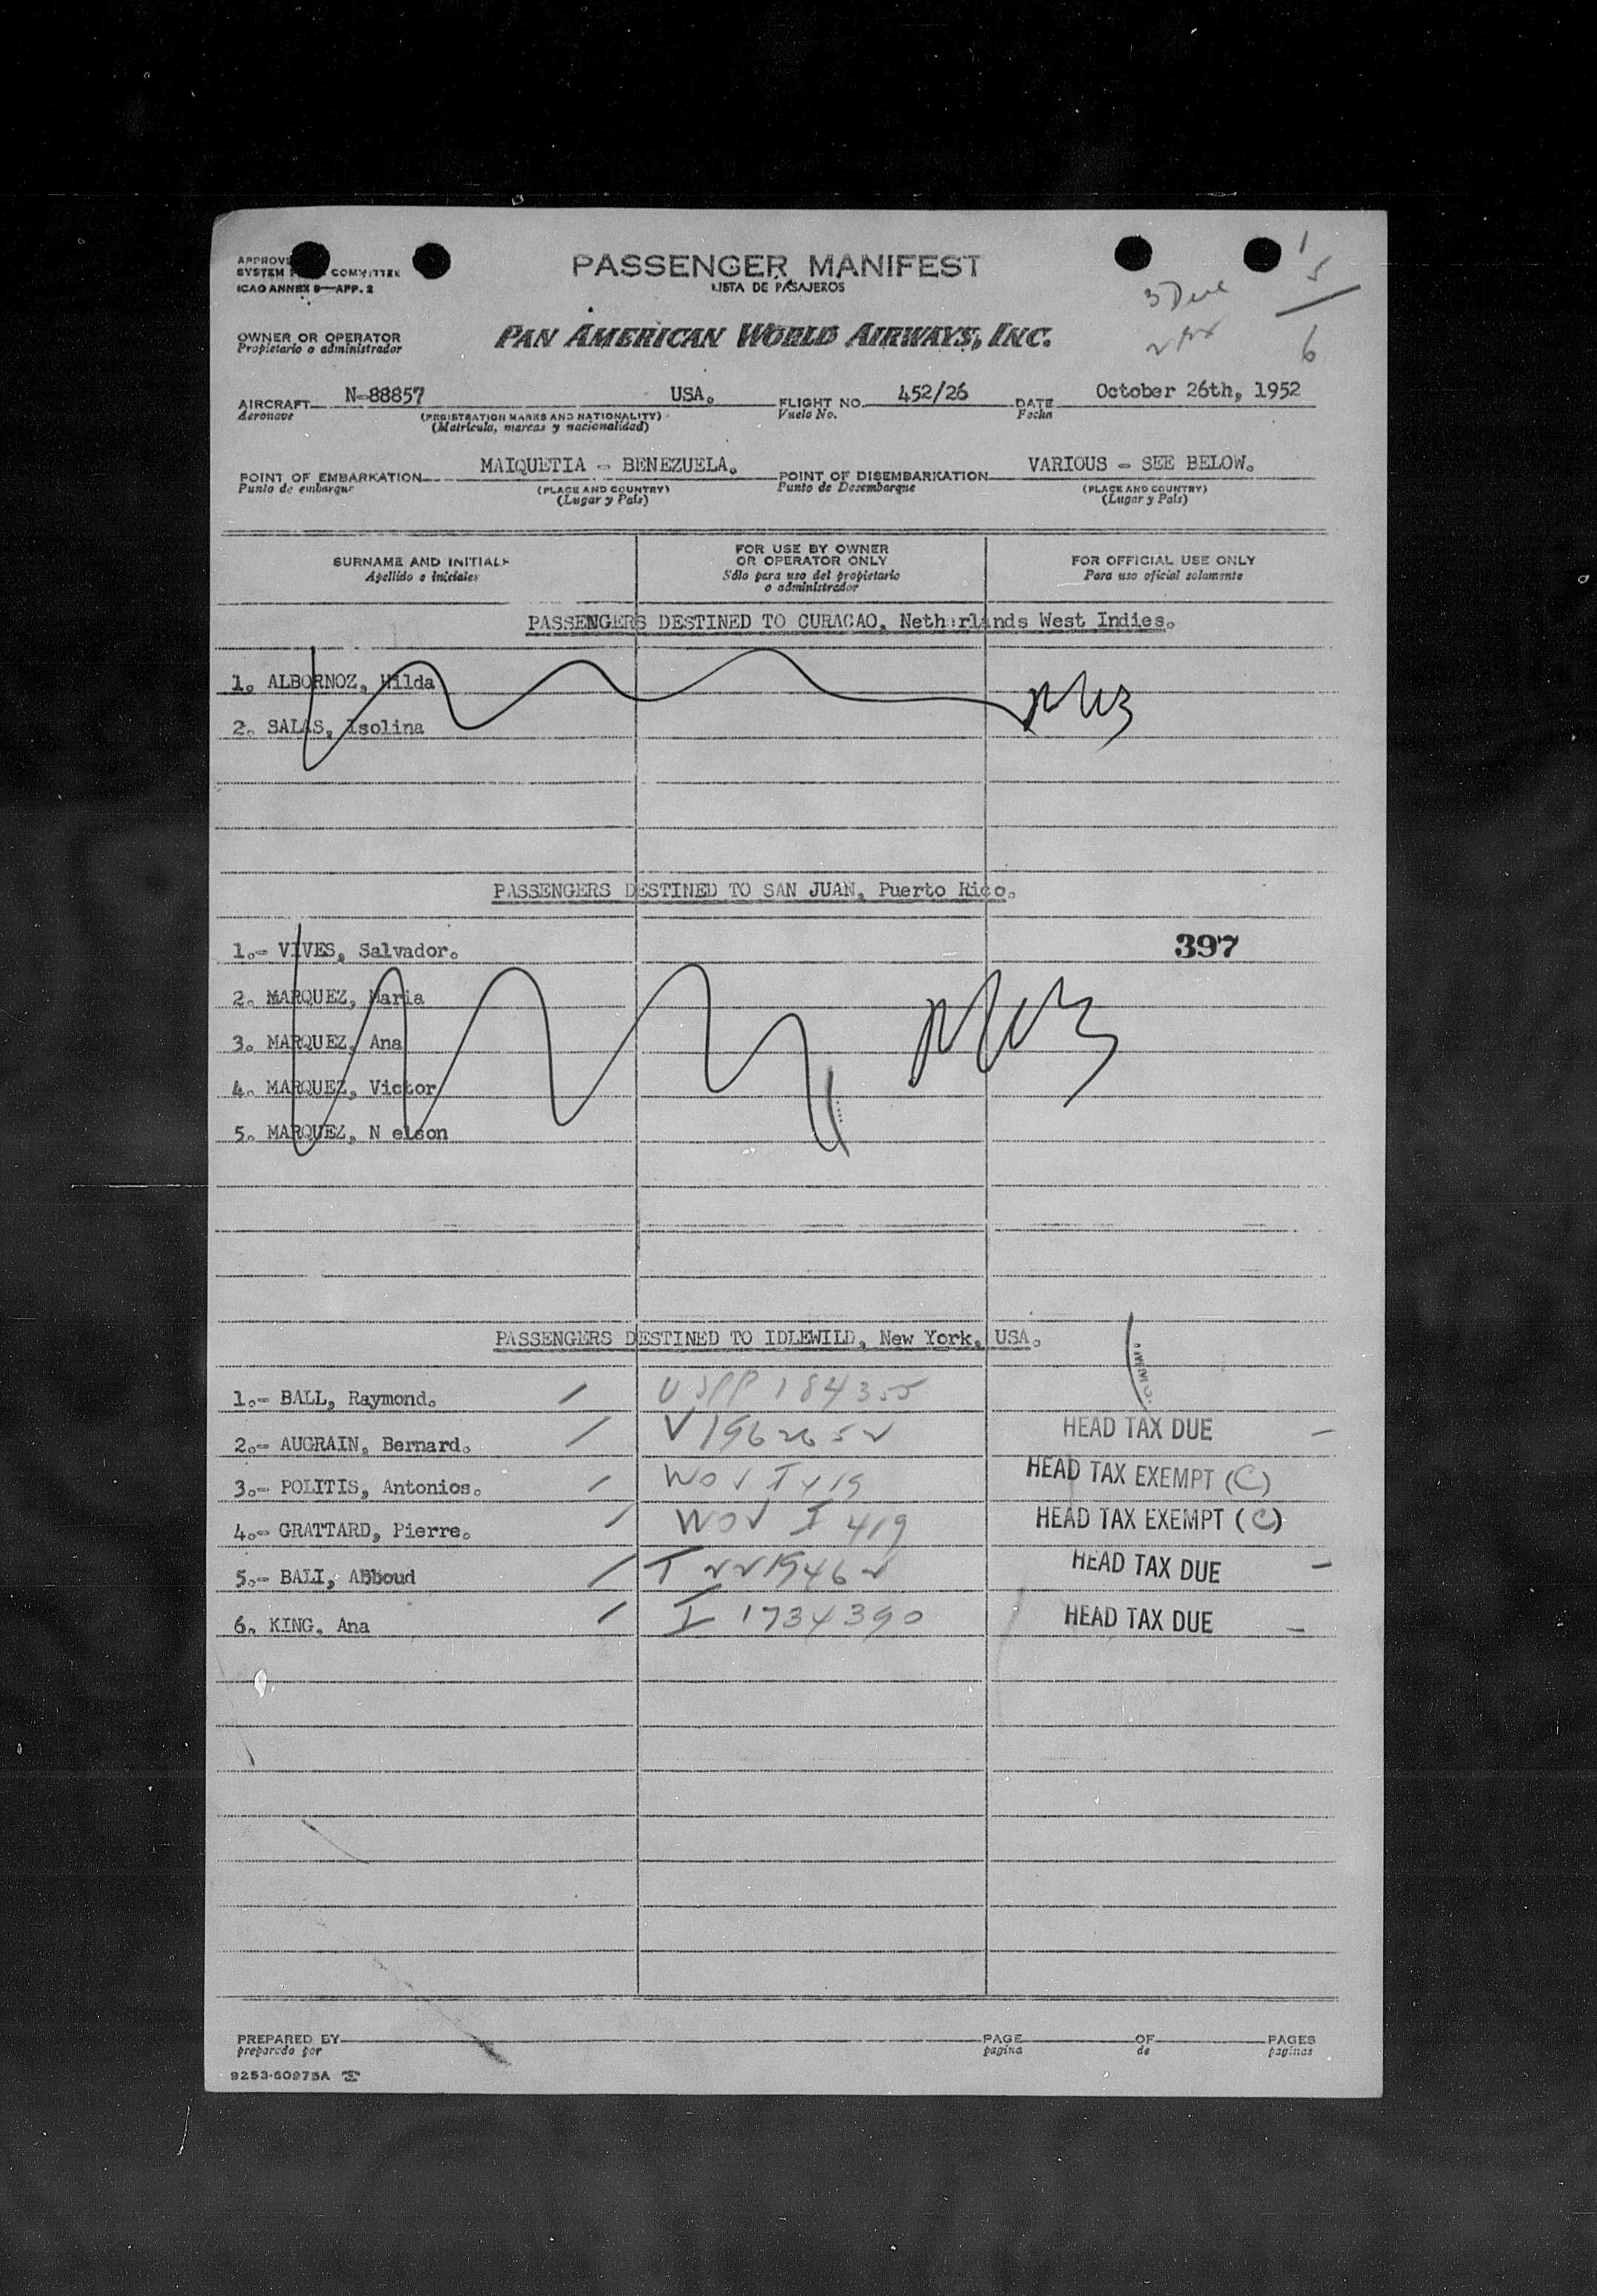 APPROVE
SYSTEM COMMITTEE
ICAO ANNEX 9—APP. 2
PASSENGER MANIFEST
LISTA DE PASAJEROS
1
5
6
3 Due
OWNER OR OPERATOR
Propietario o administrador
PAN AMERICAN WORLD AIRWAYS, INC.
AIRCRAFT N-88857 USA. FLIGHT NO. 452/26 DATE October 26th, 1952
Aeronave (REGISTRATION MARKS AND NATIONALITY) Vuelo No. Fecha
(Matrícula, marcas y nacionalidad)
POINT OF EMBARKATION MAIQUETIA - BENEZUELA. POINT OF DISEMBARKATION VARIOUS - SEE BELOW.
Punto de embarque (PLACE AND COUNTRY) Punto de Desembarque (PLACE AND COUNTRY)
(Lugar y País) (Lugar y País)
SURNAME AND INITIALS
Apellido e iniciales
FOR USE BY OWNER
OR OPERATOR ONLY
Sólo para uso del propietario
o administrador
FOR OFFICIAL USE ONLY
Para uso oficial solamente
PASSENGERS DESTINED TO CURACAO, Netherlands West Indies.
1. ALBORNOZ, Hilda
2. SALAS, Isolina
PASSENGERS DESTINED TO SAN JUAN, Puerto Rico.
1.- VIVES, Salvador. 397
2. MARQUEZ, Maria
3. MARQUEZ, Ana
4. MARQUEZ, Victor
5. MARQUEZ, N elson
PASSENGERS DESTINED TO IDLEWILD, New York, USA.
1.- BALL, Raymond. USPP 184355
2.- AUGRAIN, Bernard. V 1962652 HEAD TAX DUE
3.- POLITIS, Antonios. I 419 HEAD TAX EXEMPT (C)
4.- GRATTARD, Pierre. I 419 HEAD TAX EXEMPT (C)
5.- BALI, Abboud I 2219462 HEAD TAX DUE
6. KING, Ana I 1734390 HEAD TAX DUE
PREPARED BY PAGE OF PAGES
preparado por pagina de paginas
9253-60975A